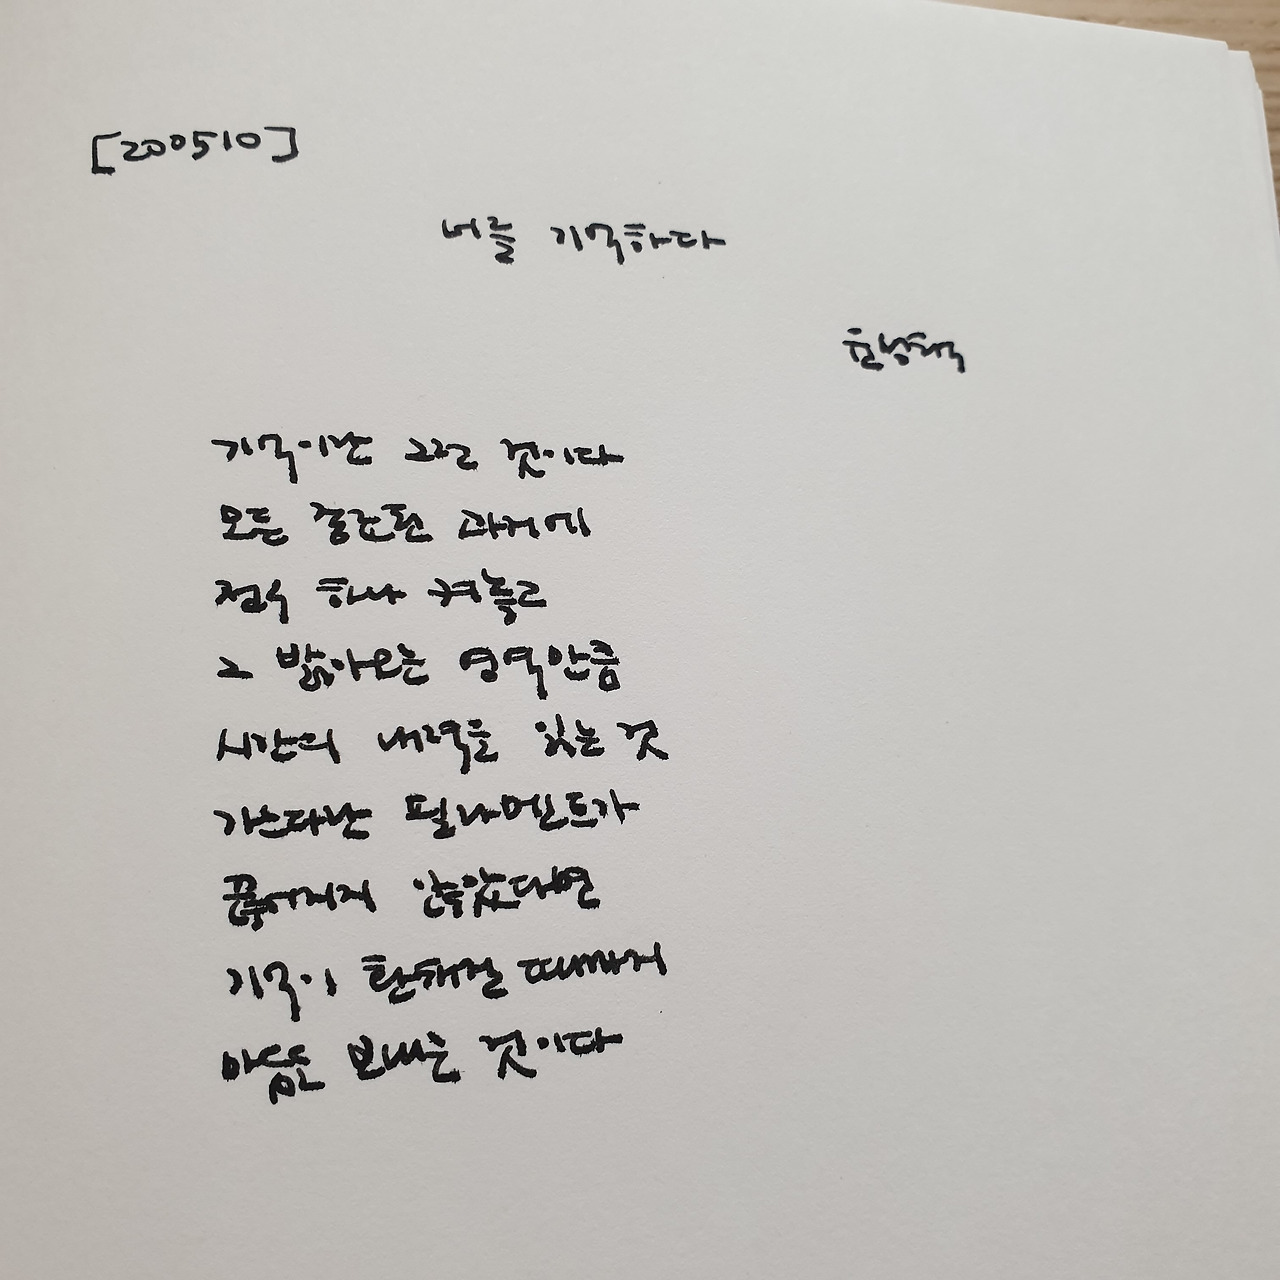 [200510]
너를 기억하다
윤성택
기억이란 그런 것이다
모든 종료된 과거에
점수 하나 켜놓고
그 밝아오는 영역만큼
시간의 내력을 읽는 것
가느다란 필라멘트가
끊어지지 않았다면
기억이 환해질 때까지
마음을 보내는 것이다